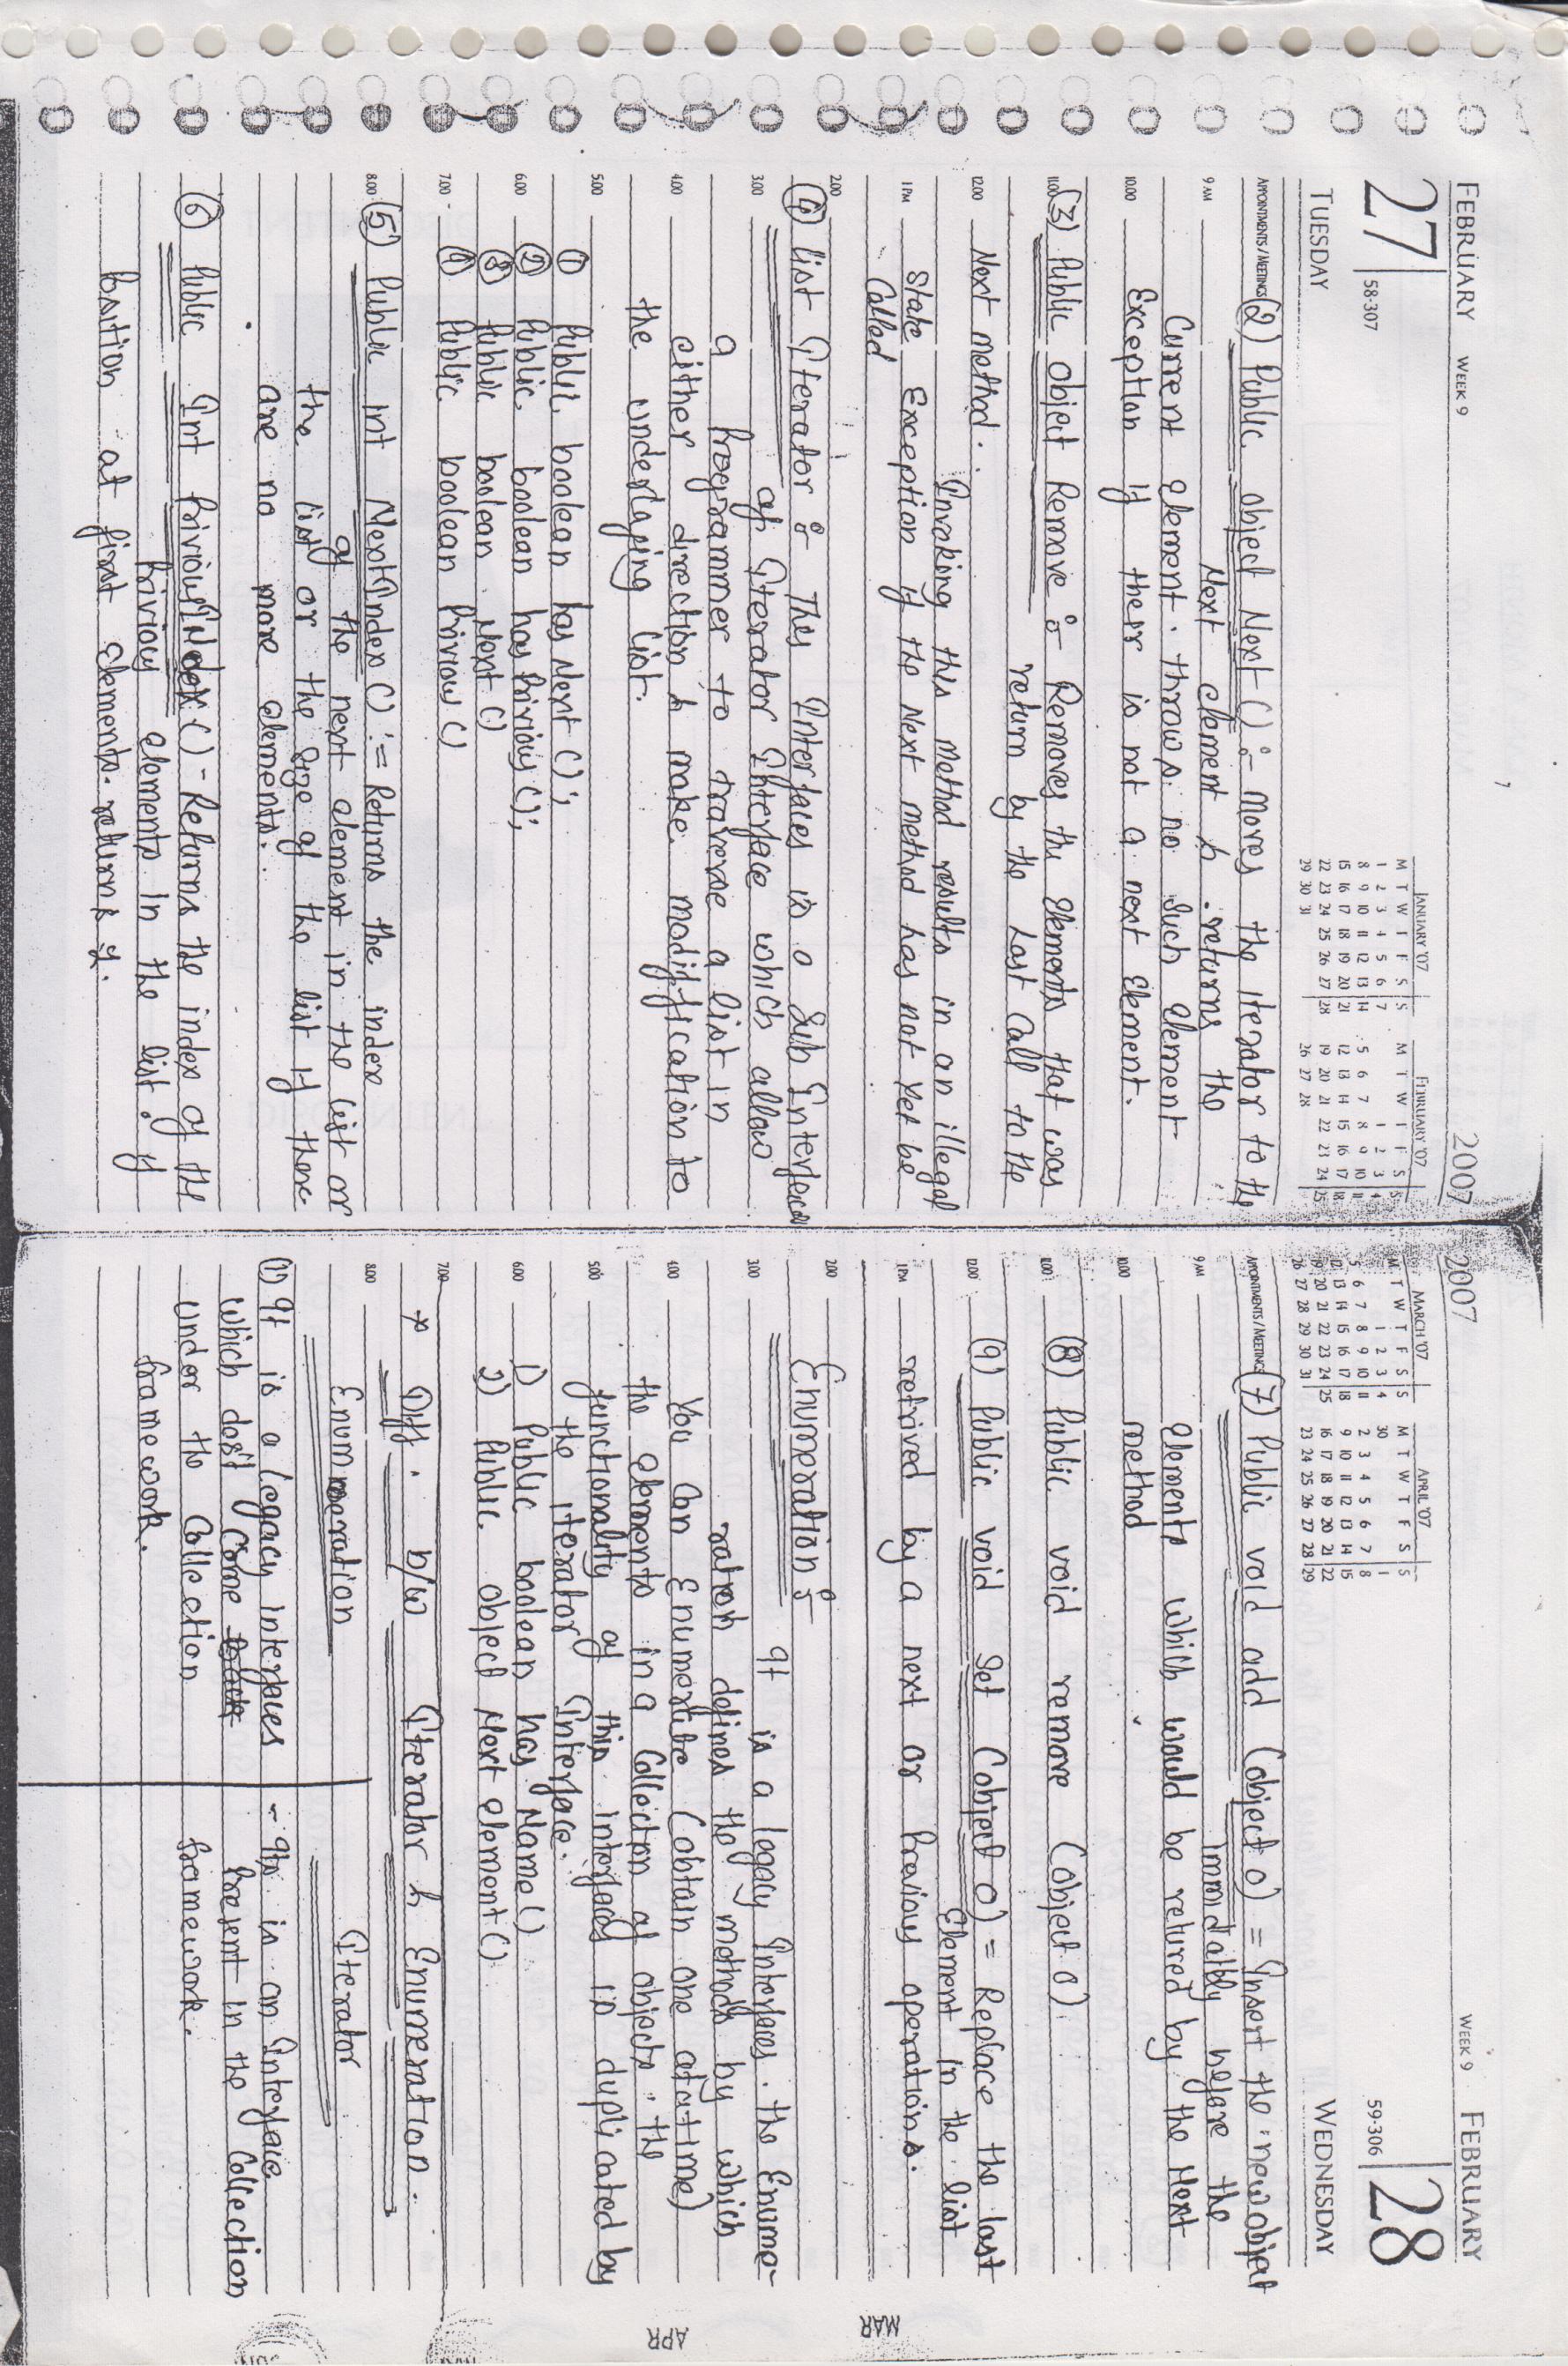 FEBRUARY WEEK 9 2007
27 58-307
TUESDAY
JANUARY '07
M T W T F S S
1 2 3 4 5 6 7
8 9 10 11 12 13 14
15 16 17 18 19 20 21
22 23 24 25 26 27 28
29 30 31
FEBRUARY '07
M T W T F S S
1 2 3 4
5 6 7 8 9 10 11
12 13 14 15 16 17 18
19 20 21 22 23 24 25
26 27 28
APPOINTMENTS / MEETINGS (2) Public object Next () :- moves the iterator to the
9 AM Next element & returns the
Current element. throws no such element
10.00 Exception if their is not a next Element.
11.00 (3) Public object Remove :- Removes the elements that was
return by the last call to the
12.00 Next method.
Invoking this method results in an illegal
1 PM State Exception if the Next method has not yet be
Called
2.00
(4) List Iterator :- This Interfaces is a Sub Interfaces
3.00 of Iterator Interface which allow
a programmer to traverse a list in
4.00 either direction & make modification to
the underlaping list.
5.00
(1) Public boolean has Next ();
6.00 (2) Public boolean has Privious ();
(3) Public boolean Next ()
7.00 (4) Public boolean Privious ()
8.00 (5) Public int Next Index () := Returns the index
of the next element in the list or
the list or the size of the list if there
are no more elements.
(6) Public Int Privious Index () - Returns the index of the
Privious elements in the list. if
Position at first elements. returns -1.
2007 WEEK 9 FEBRUARY
59-306 28
WEDNESDAY
MARCH '07
M T W T F S S
1 2 3 4
5 6 7 8 9 10 11
12 13 14 15 16 17 18
19 20 21 22 23 24 25
26 27 28 29 30 31
APRIL '07
M T W T F S S
30 1
2 3 4 5 6 7 8
9 10 11 12 13 14 15
16 17 18 19 20 21 22
23 24 25 26 27 28 29
APPOINTMENTS / MEETINGS (7) Public void add (object o) = Insert the new object
9 AM Immidatbly before the
Elements which would be returned by the Next
10.00 method
11.00 (8) Public void remove (object o)
12.00 (9) Public void Set (object o) = Replace the last
Element in the list
1 PM retrived by a next or Previous operations.
2.00
Enumeration :-
3.00 It is a legacy Interfaces. the Enume-
ration defines the methods by which
4.00 You can Enumerate (obtain one atatime)
the elements in a Collection of objects. the
5.00 functionality of this interfaces is duplicated by
the iterator Interface.
6.00 1) Public boolean has Name ()
2) Public object Next element ()
7.00
* Diff. b/w Iterator & Enumeration.
8.00 Enumeration Iterator
(1) It is a legacy Interfaces - It is an Interface
which dos't Come Present in the Collection
under the Collection framework.
frame work.
MAR
APR